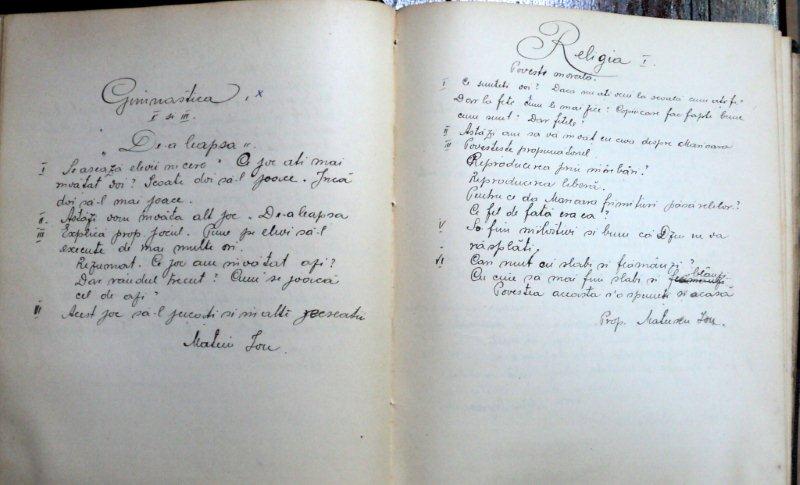 Gimnastica x
I si III.
„De-a leapsa".
I Se asează elevii in cerc. Ce joc ati mai
învătat voi? Scoate doi să-l joace. Încă
doi să-l mai joace.
II. Astăzi vom învăta alt joc. De-a leapsa
III Explică prop. jocul. Pune pe elevi să-l
execute de mai multe ori.
Rezumat. Ce joc am învătat azi?
Dar rândul trecut? Cum se joacă
cel de azi?
VI Acest joc să-l jucati si in alte recreatii
Mateiu Ion.
Religia I.
Poveste morală.
I Ce sunteti voi? Dacă nu ati veni la scoală cum ati fi?
Dar la fete cum le mai zice? Copiii care fac fapte bune
cum sunt? Dar fetele?
II Astăzi am să vă învăt eu ceva despre Marioara
III Povesteste propunatorul.
Reproducerea prin întrebări.
Reproducerea liberă.
Pentru ce da Marioara firimituri păsărelelor?
Ce fel de fată era ea?
V Să fim milostivi si buni că Dzeu ne va
răsplăti.
VI Cari sunt cei slabi si flămânzi?
Cu cine să mai fim slabi si blânzi
Povestea aceasta s'o spuneti si acasă
Prop. Ion.